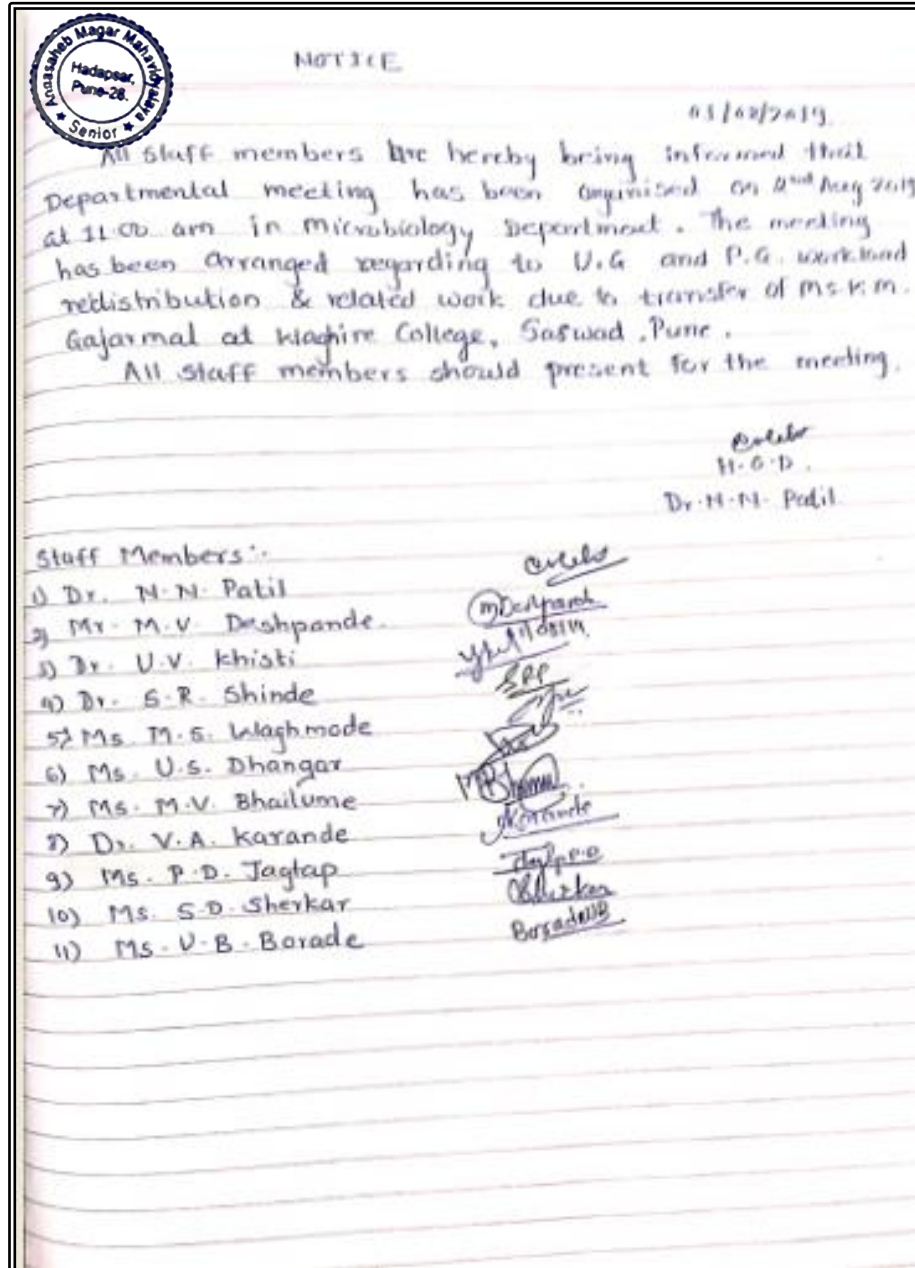 Annasaheb Magar Mahavidyalaya
Hadapsar,
Pune-28.
★ Senior ★
NOTICE
01/08/2019
All staff members are hereby being informed that
Departmental meeting has been organised on 2nd Aug 2019
at 11.00 am in Microbiology Department. The meeting
has been arranged regarding to U.G and P.G. workload
redistribution & related work due to transfer of Ms. K.M.
Gajarmal at Waghire College, Saswad, Pune.
All staff members should present for the meeting.
H.O.D.
Dr. N.N. Patil
Staff Members:-
1) Dr. N.N. Patil
2) Mr. M.V. Deshpande. MDeshpande
3) Dr. U.V. Khisti
4) Dr. S.R. Shinde
5) Ms. M.S. Waghmode
6) Ms. U.S. Dhangar
7) Ms. M.V. Bhailume
8) Dr. V.A. Karande Karande
9) Ms. P.D. Jagtap
10) Ms. S.D. Sherkar
11) Ms. V.B. Borade BoradeVB